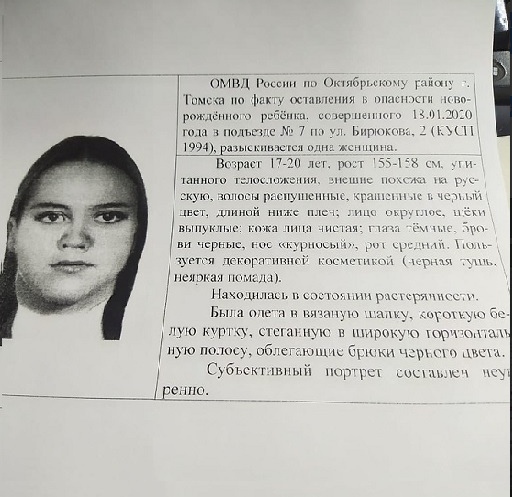 ОМВД России по Октябрьскому району г.
Томска по факту оставления в опасности ново-
рождённого ребёнка, совершенного 18.01.2020
года в подъезде № 7 по ул. Бирюкова, 2 (КУСП
1994), разыскивается одна женщина.
Возраст 17-20 лет, рост 155-158 см, упи-
танного телосложения, внешне похожа на рус-
скую, волосы распушенные, крашенные в черный
цвет, длиной ниже плеч; лицо округлое, щёки
выпуклые; кожа лица чистая; глаза тёмные, бро-
ви черные, нос «курносый», рот средний. Поль-
зуется декоративной косметикой (черная тушь,
неяркая помада).
Находилась в состоянии растерянности.
Была одета в вязаную шапку, короткую бе-
лую куртку, стеганную в широкую горизонталь
ную полосу, облегающие брюки черного цвета.
Субъективный портрет составлен неуп
ренно.